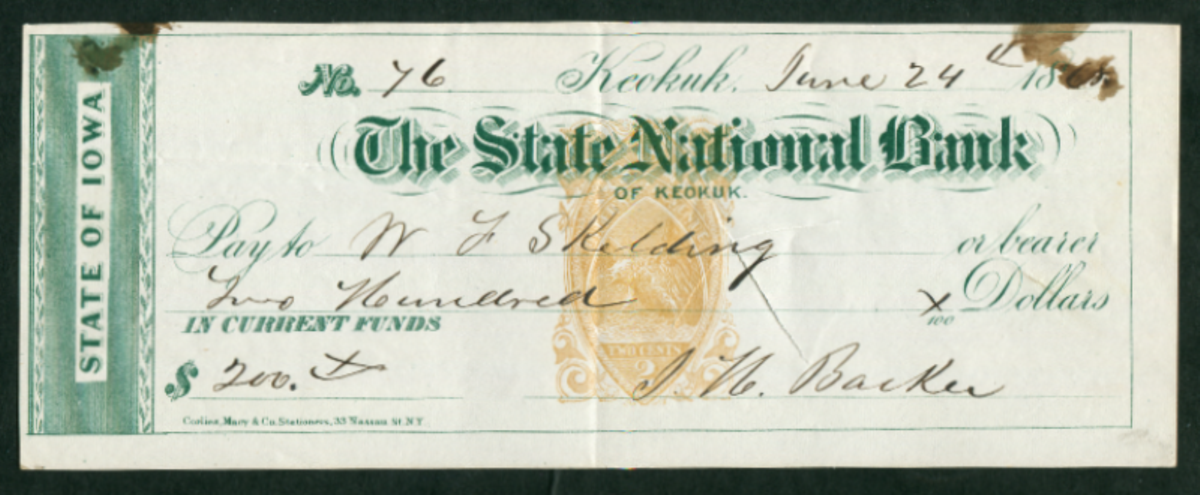 No. 76 Keokuk, June 24th 18
The State National Bank
OF KEOKUK.
Pay to W F Skelding or bearer
Two Hundred x/100 Dollars
IN CURRENT FUNDS
$ 200. x
TWO CENTS
2
Corlies, Macy & Co. Stationers, 33 Nassau St. N.Y.
STATE OF IOWA